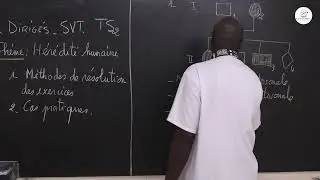 Dirigés_SVT. TS2
Thème: Hérédité humaine
1. Méthodes de resolution
des exercices
2. Cas pratiques.
I
II